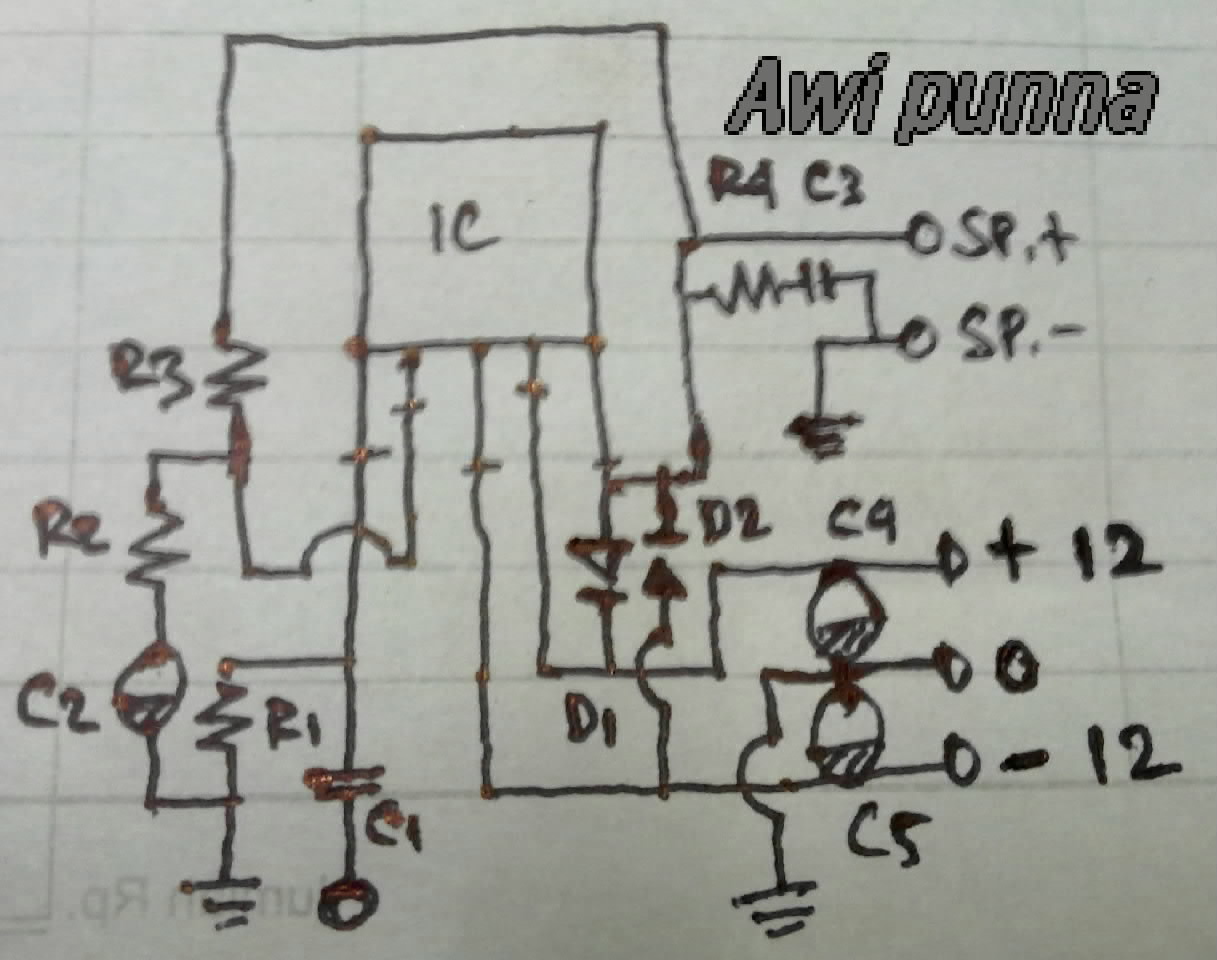 Awi punna
R4 C3
IC
SP.+
R3
SP.-
R2
D2
C4
+ 12
0
C2
R1
D1
- 12
C1
C5